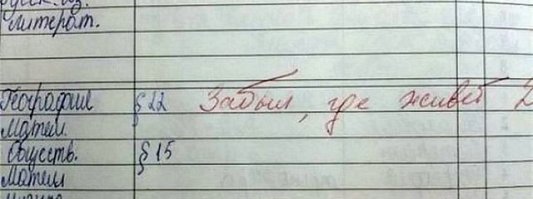 литерат.
География § 22 Забыл, где живет 2
Матем.
Обществ. § 15
Матем